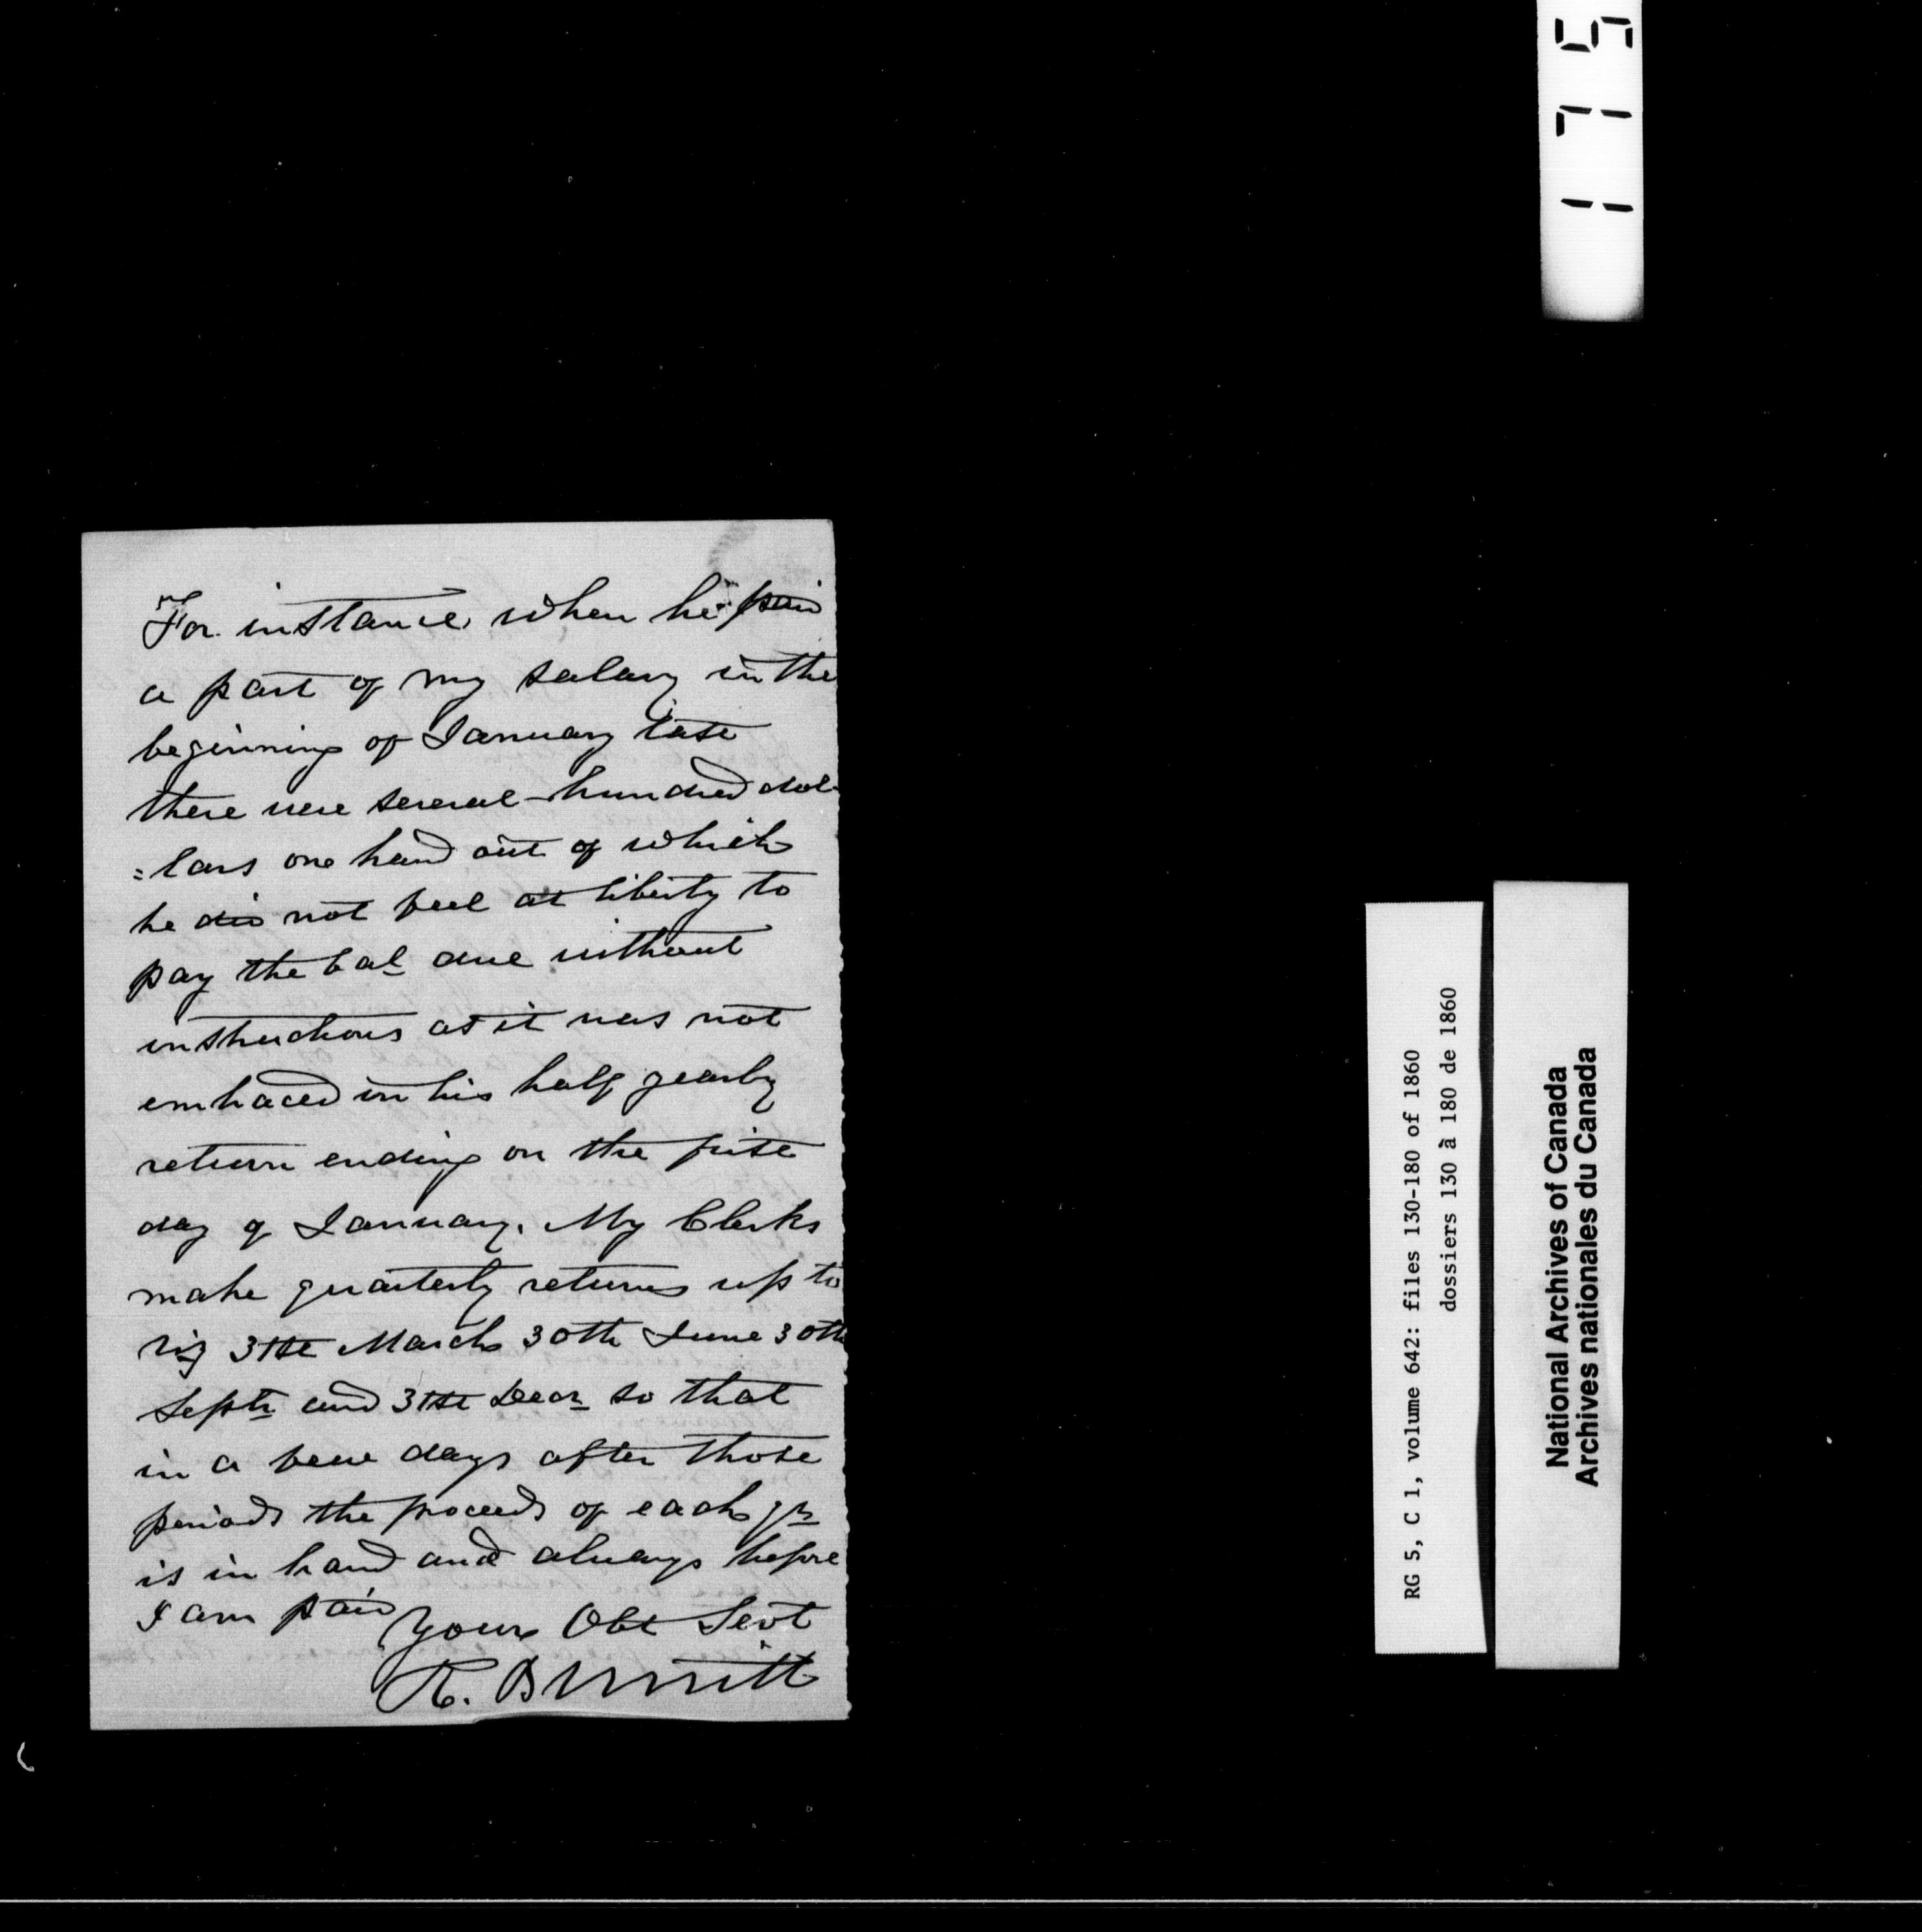 For instance when he paid
a part of my salary in the
beginning of January last
there were several hundred dol-
=lars one hand out of which
he did not feel at liberty to
pay the bal due without
instructions as it was not
embraced in his half yearly
return ending on the first
day of January. My Clerks
make quarterly returns up to
viz 31st March 30th June 30th
Septr and 31st Decr so that
in a few days after those
periods the proceeds of each qr
is in hand and always before
I am paid
Yours Obt Servt
R. Burritt
1715
RG 5, C 1, volume 642: files 130-180 of 1860
dossiers 130 à 180 de 1860
National Archives of Canada
Archives nationales du Canada